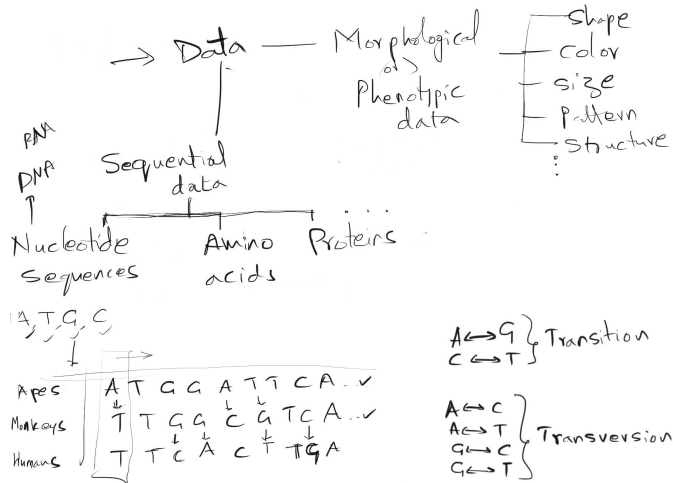 → Data — Morphological
or
Phenotypic
data
Shape
color
size
Pattern
Structure
RNA
DNA
Sequential
data
Nucleotide
Sequences
Amino
acids
Proteins
A, T, G, C
Apes A T G G A T T C A...✓
Monkeys T T G G C G T C A...✓
Humans T T C A C T T G A
A ↔ G
C ↔ T
Transition
A ↔ C
A ↔ T
G ↔ C
G ↔ T
Transversion